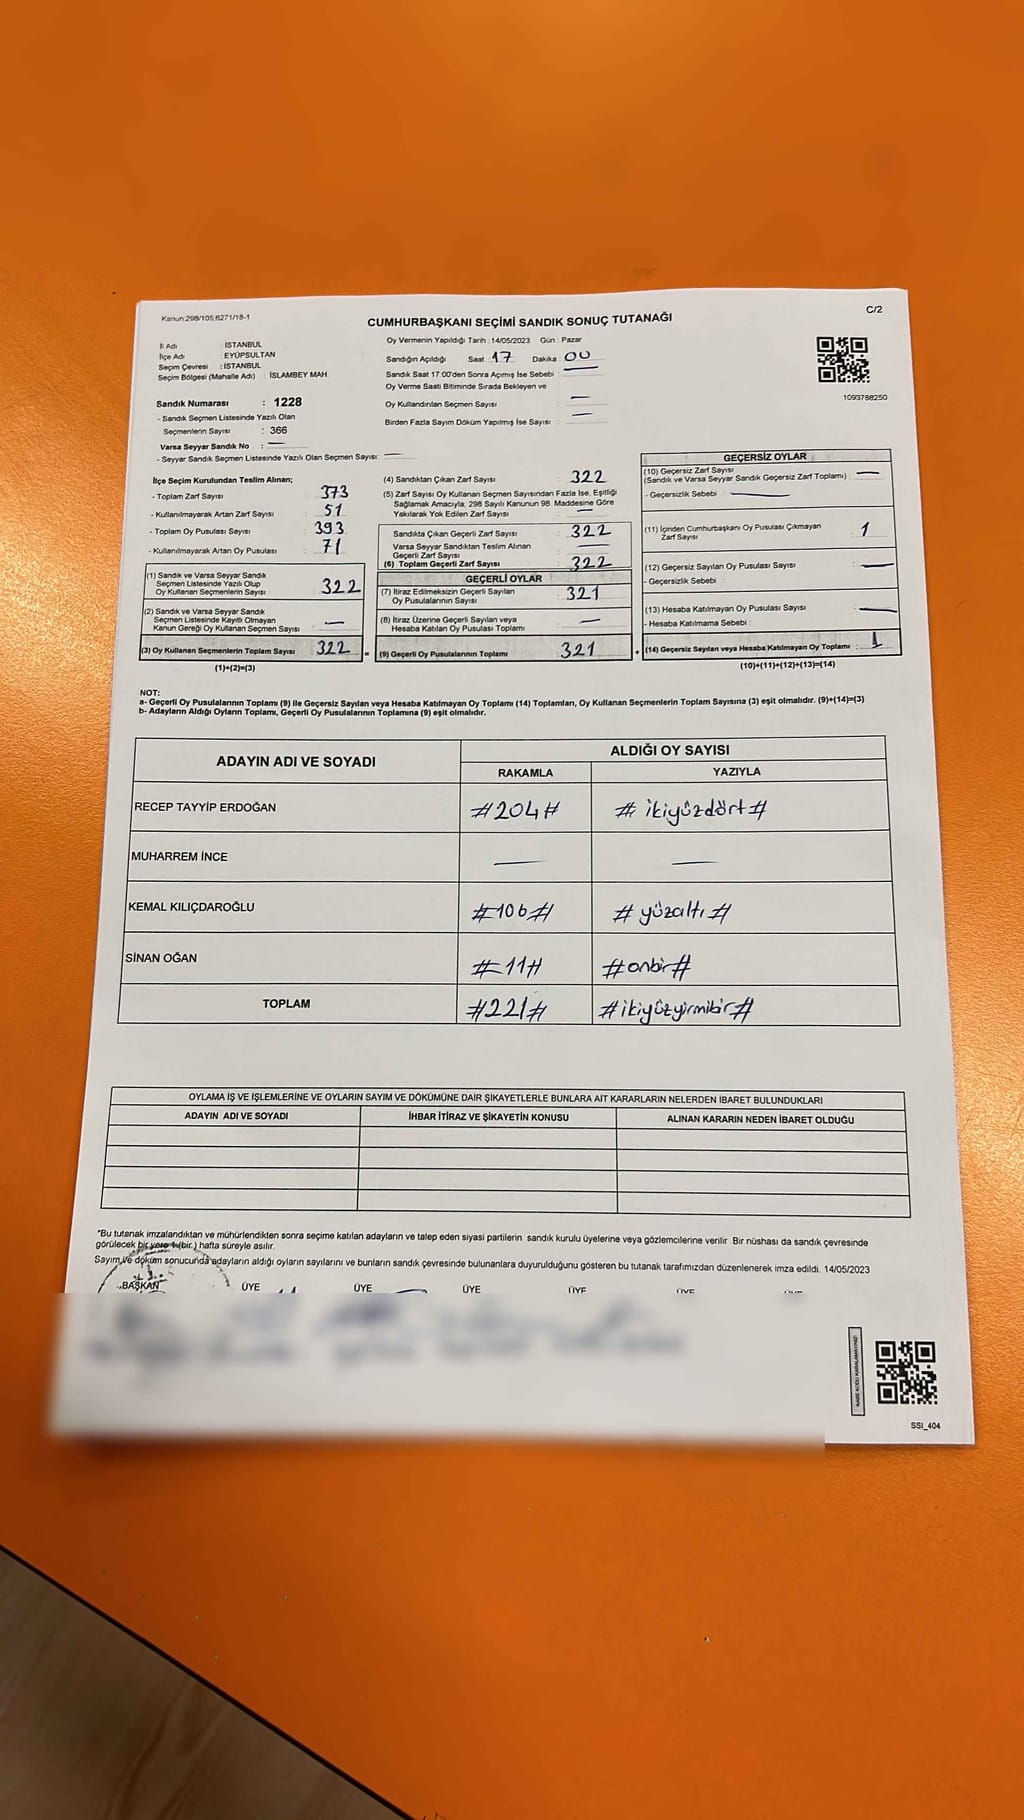 Kanun:298/105,6271/18-1
C/2
CUMHURBAŞKANI SEÇİMİ SANDIK SONUÇ TUTANAĞI
İl Adı : İSTANBUL
İlçe Adı : EYÜPSULTAN
Seçim Çevresi : İSTANBUL
Seçim Bölgesi (Mahalle Adı) : İSLAMBEY MAH.
Sandık Numarası : 1228
- Sandık Seçmen Listesinde Yazılı Olan
Seçmenlerin Sayısı : 366
Varsa Seyyar Sandık No : —
- Seyyar Sandık Seçmen Listesinde Yazılı Olan Seçmen Sayısı: —
Oy Vermenin Yapıldığı Tarih : 14/05/2023 Gün : Pazar
Sandığın Açıldığı Saat 17 Dakika 00
Sandık Saat 17:00'den Sonra Açımış İse Sebebi : —
Oy Verme Saati Bitiminde Sırada Bekleyen ve
Oy Kullandırılan Seçmen Sayısı : —
Birden Fazla Sayım Döküm Yapılmış İse Sayısı : —
1093788250
İlçe Seçim Kurulundan Teslim Alınan;
- Toplam Zarf Sayısı : 373
- Kullanılmayarak Artan Zarf Sayısı : 51
- Toplam Oy Pusulası Sayısı : 393
- Kullanılmayarak Artan Oy Pusulası : 71
(1) Sandık ve Varsa Seyyar Sandık
Seçmen Listesinde Yazılı Olup
Oy Kullanan Seçmenlerin Sayısı : 322
(2) Sandık ve Varsa Seyyar Sandık
Seçmen Listesinde Kayıtlı Olmayan
Kanun Gereği Oy Kullanan Seçmen Sayısı : —
(3) Oy Kullanan Seçmenlerin Toplam Sayısı : 322
(1)+(2)=(3)
(4) Sandıktan Çıkan Zarf Sayısı : 322
(5) Zarf Sayısı Oy Kullanan Seçmen Sayısından Fazla İse, Eşitliği
Sağlamak Amacıyla, 298 Sayılı Kanunun 98. Maddesine Göre
Yakılarak Yok Edilen Zarf Sayısı : —
Sandıkta Çıkan Geçerli Zarf Sayısı : 322
Varsa Seyyar Sandıktan Teslim Alınan
Geçerli Zarf Sayısı : —
(6) Toplam Geçerli Zarf Sayısı : 322
GEÇERLİ OYLAR
(7) İtiraz Edilmeksizin Geçerli Sayılan
Oy Pusulalarının Sayısı : 321
(8) İtiraz Üzerine Geçerli Sayılan veya
Hesaba Katılan Oy Pusulası Toplamı : —
= (9) Geçerli Oy Pusulalarının Toplamı 321
GEÇERSİZ OYLAR
(10) Geçersiz Zarf Sayısı
(Sandık ve Varsa Seyyar Sandık Geçersiz Zarf Toplamı) : —
- Geçersizlik Sebebi : —
(11) İçinden Cumhurbaşkanı Oy Pusulası Çıkmayan
Zarf Sayısı : 1
(12) Geçersiz Sayılan Oy Pusulası Sayısı : —
- Geçersizlik Sebebi :
(13) Hesaba Katılmayan Oy Pusulası Sayısı : —
- Hesaba Katılmama Sebebi :
+ (14) Geçersiz Sayılan veya Hesaba Katılmayan Oy Toplamı : 1
(10)+(11)+(12)+(13)=(14)
NOT:
a- Geçerli Oy Pusulalarının Toplamı (9) ile Geçersiz Sayılan veya Hesaba Katılmayan Oy Toplamı (14) Toplamları, Oy Kullanan Seçmenlerin Toplam Sayısına (3) eşit olmalıdır. (9)+(14)=(3)
b- Adayların Aldığı Oyların Toplamı, Geçerli Oy Pusulalarının Toplamına (9) eşit olmalıdır.
ADAYIN ADI VE SOYADI
ALDIĞI OY SAYISI
RAKAMLA YAZIYLA
RECEP TAYYİP ERDOĞAN #204# # ikiyüzdört #
MUHARREM İNCE — —
KEMAL KILIÇDAROĞLU #106# # yüzaltı #
SİNAN OĞAN #11# #onbir#
TOPLAM #221# #ikiyüzyirmibir#
OYLAMA İŞ VE İŞLEMLERİNE VE OYLARIN SAYIM VE DÖKÜMÜNE DAİR ŞİKAYETLERLE BUNLARA AİT KARARLARIN NELERDEN İBARET BULUNDUKLARI
ADAYIN ADI VE SOYADI İHBAR İTİRAZ VE ŞİKAYETİN KONUSU ALINAN KARARIN NEDEN İBARET OLDUĞU
*Bu tutanak imzalandıktan ve mühürlendikten sonra seçime katılan adayların ve talep eden siyasi partilerin sandık kurulu üyelerine veya gözlemcilerine verilir. Bir nüshası da sandık çevresinde
görülecek bir yere 1 (bir) hafta süreyle asılır.
Sayım ve döküm sonucunda adayların aldığı oyların sayılarını ve bunların sandık çevresinde bulunanlara duyurulduğunu gösteren bu tutanak tarafımızdan düzenlenerek imza edildi. 14/05/2023
BAŞKAN ÜYE ÜYE ÜYE ÜYE ÜYE ÜYE
SSI_404